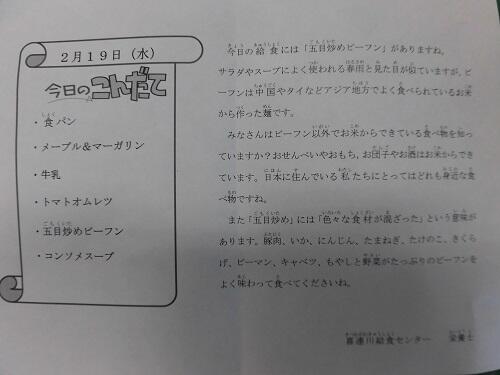 2月19日（水）
今日のこんだて
・食パン
・メープル&マーガリン
・牛乳
・トマトオムレツ
・五目炒めビーフン
・コンソメスープ
今日の給食には「五目炒めビーフン」がありますね。
サラダやスープによく使われる春雨と見た目が似ていますが、ビ
ーフンは中国やタイなどアジア地方でよく食べられているお米
から作った麺です。
みなさんはビーフン以外でお米からできている食べ物を知っ
ていますか？おせんべいやおもち、お団子やお酒はお米からでき
ています。日本に住んでいる私たちにとってはどれも身近な食
べ物ですね。
また「五目炒め」には「色々な食材が混ざった」という意味が
あります。豚肉、いか、にんじん、たまねぎ、たけのこ、きくら
げ、ピーマン、キャベツ、もやしと野菜がたっぷりのビーフンを
よく味わって食べてくださいね。
喜連川給食センター　栄養士